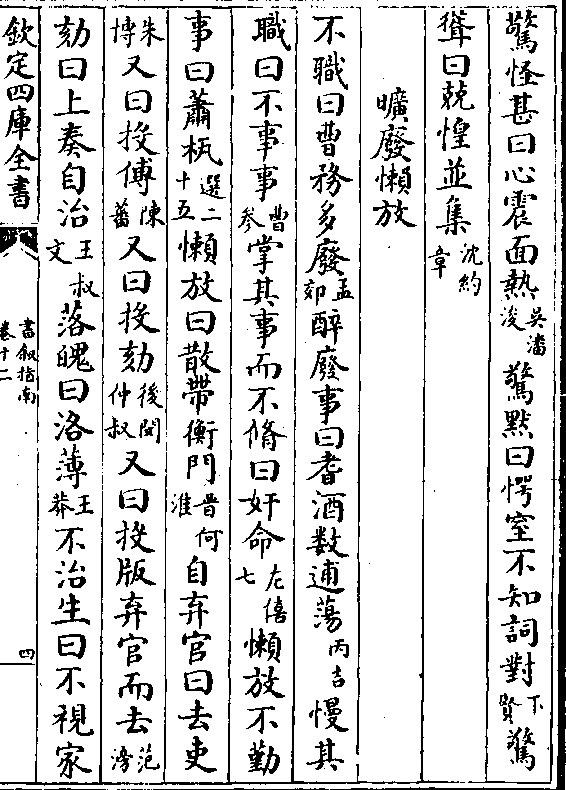 驚怪甚曰心震面熱吳潘濬驚黙曰愕窒不知詞對下賢驚
聳曰兢惶並集沈約章
曠廢懶放
不職曰曹務多廢孟郊醉廢事曰耆酒数逋蕩丙吉慢其
職曰不事事曹參掌其事而不脩曰奸命左僖七懶放不勤
事曰蕭柧選二十五懶放曰散帶衡門晉何准自弃官曰去吏
朱博又曰投傅陳蕃又曰投劾後閔仲叔又曰投版弃官而去范滂
劾曰上奏自治王叔文落魄曰洛薄王莽不治生曰不視家
欽定四庫全書
書叙指南
卷十二
四